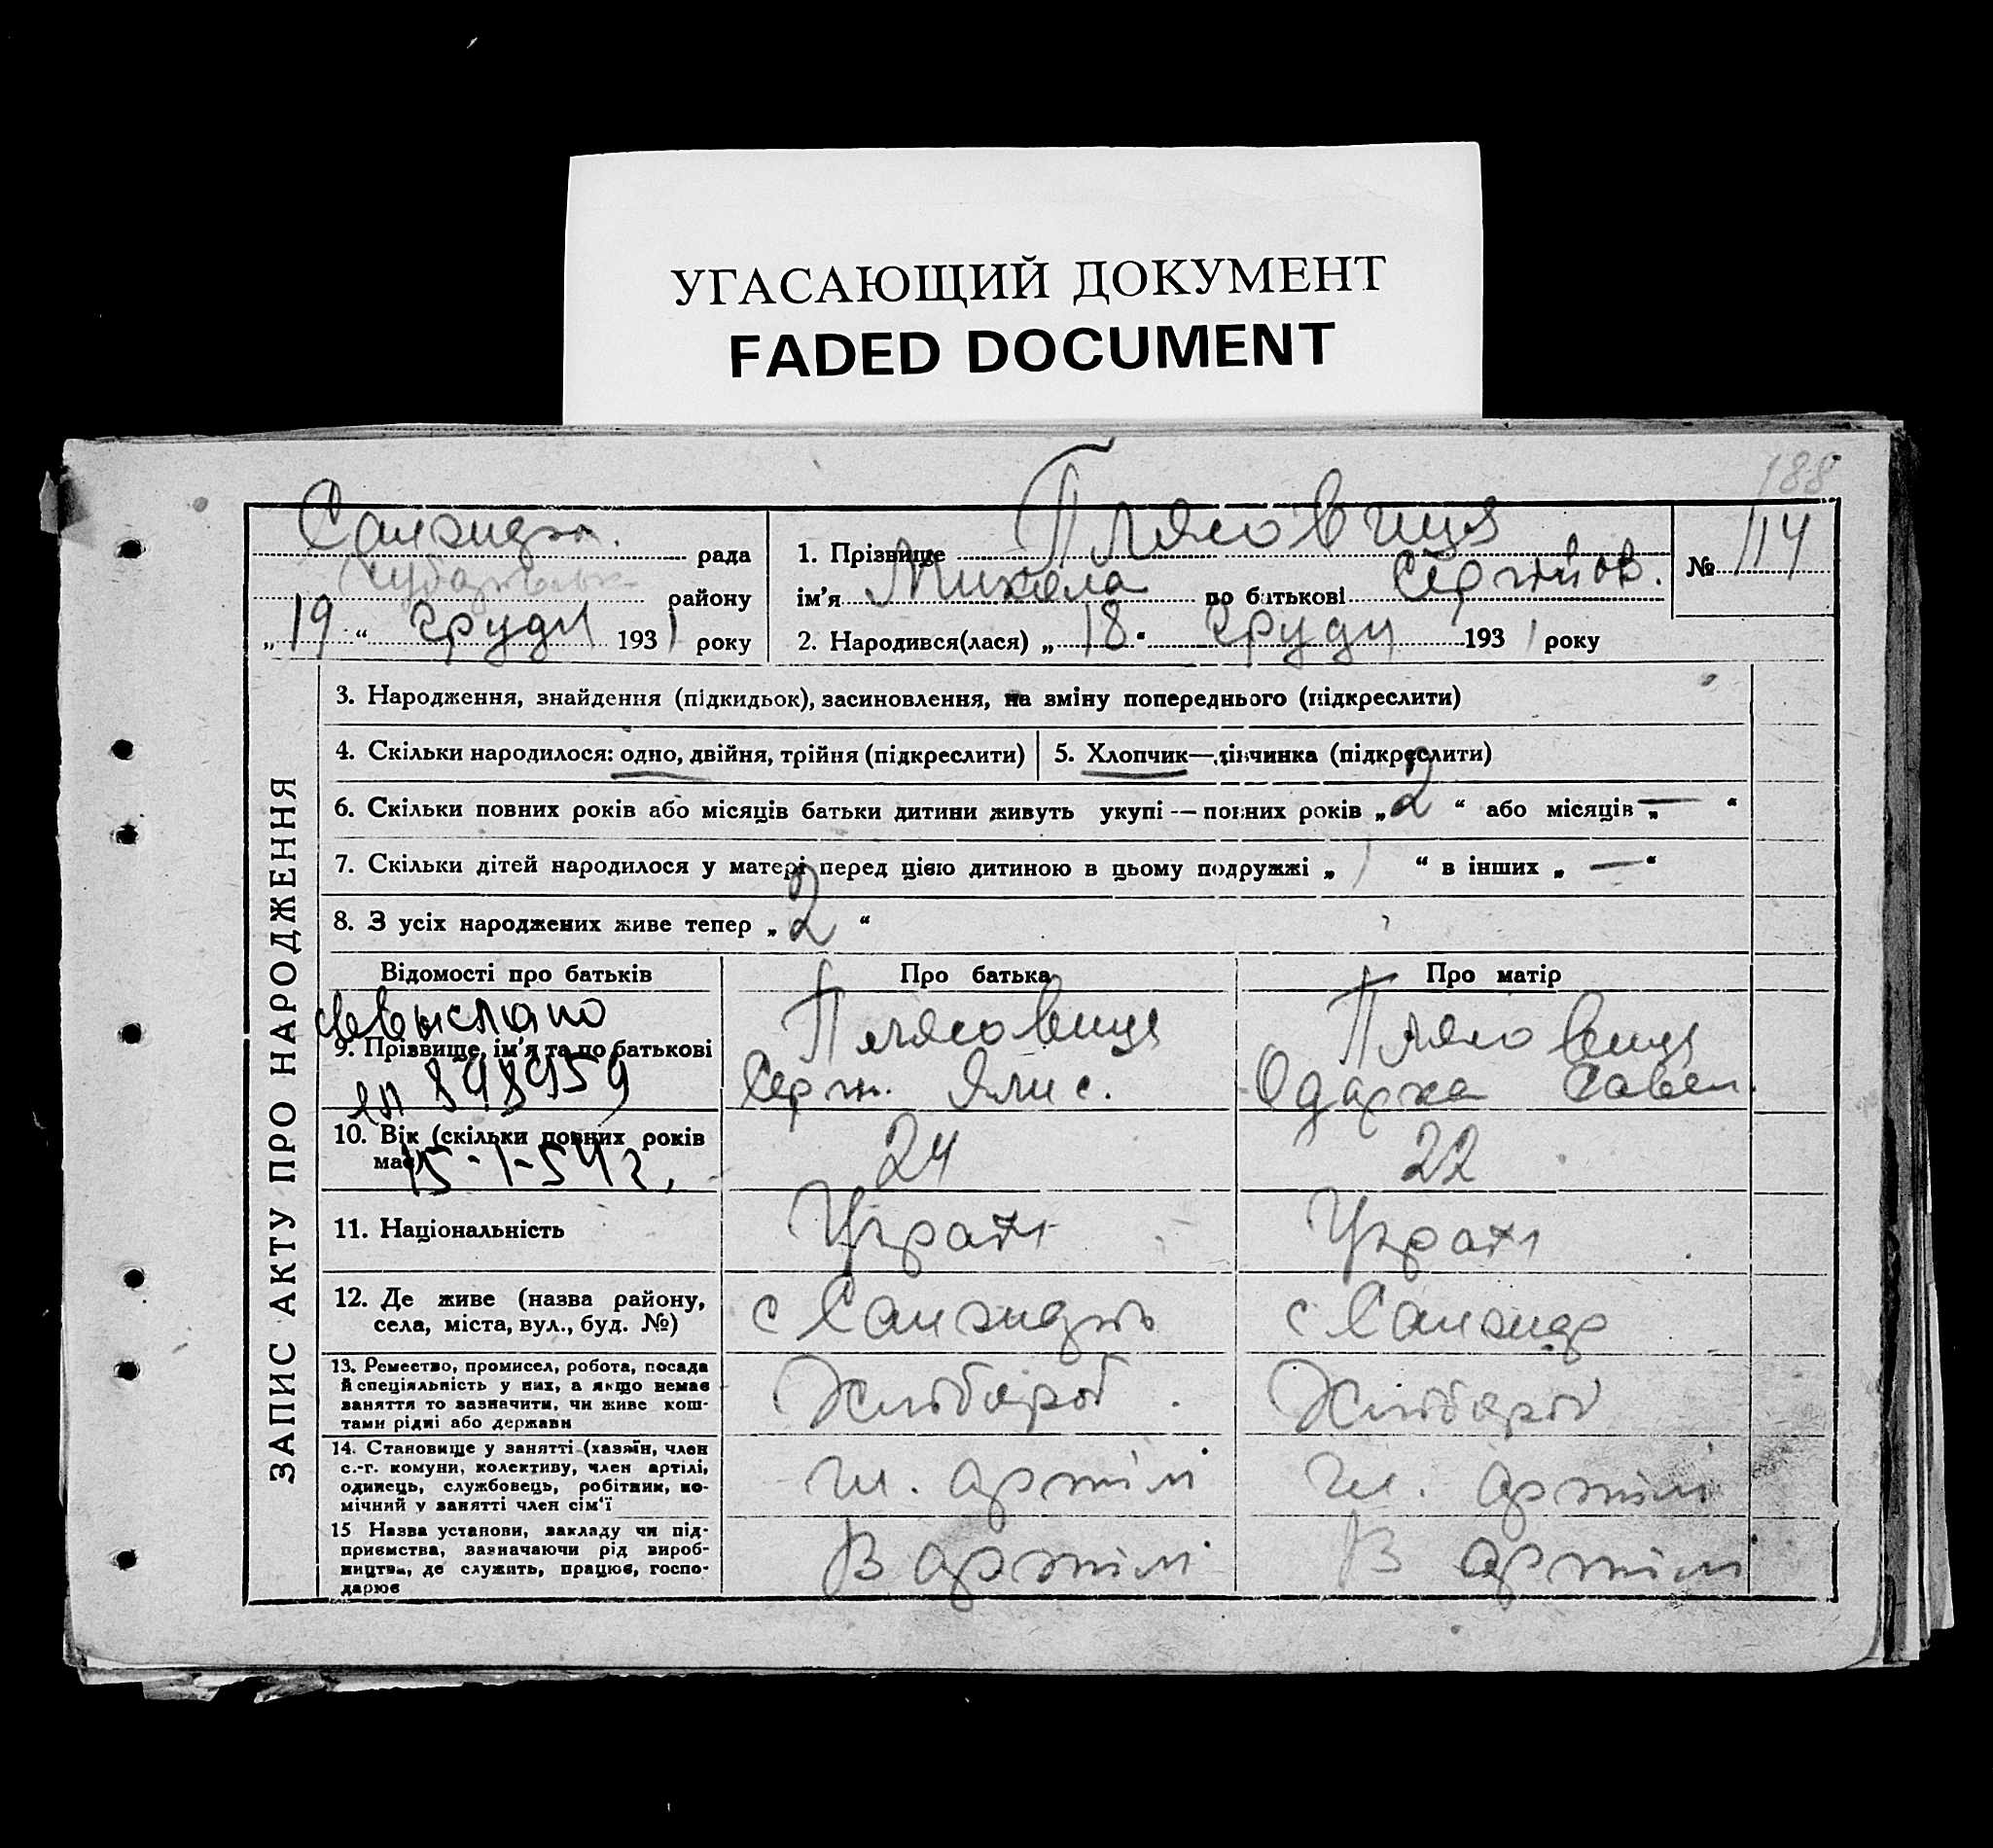 УГАСАЮЩИЙ ДОКУМЕНТ
FADED DOCUMENT
188
рада
району
„ 19 “ груды 1931 року
1. Прізвище
ім'я Микола по батькові Сергійов.
2. Народився(лася) „ 18 “ груды 1931 року
№ 114
ЗАПИС АКТУ ПРО НАРОДЖЕННЯ
3. Народження, знайдення (підкидьок), засиновлення, на зміну попереднього (підкреслити)
4. Скільки народилося: одно, двійня, трійня (підкреслити)
5. Хлопчик—дівчинка (підкреслити)
6. Скільки повних років або місяців батьки дитини живуть укупі — повних років „ 2 “ або місяців „ — “
7. Скільки дітей народилося у матері перед цією дитиною в цьому подружжі „ 1 “ в інших „ — “
8. З усіх народжених живе тепер „ 2 “
Відомості про батьків
Про батька
Про матір
выслано
9. Прізвище, ім'я та по батькові
898959
Серг.
Одарка Савел.
10. Вік (скільки повних років має)
15-1-54 г.
24
22
11. Національність
Украї
Украї
12. Де живе (назва району, села, міста, вул., буд. №)
с
с
13. Ремество, промисел, робота, посада
й спеціяльність у них, а якщо немає
заняття то зазначити, чи живе кош-
тами рідні або держави
Хлібороб
Хлібороб
14. Становище у занятті (хазяїн, член
с.-г. комуни, колективу, член артілі,
одинець, службовець, робітник, по-
мічний у занятті член сім'ї
чл. артілі
чл. артілі
15 Назва установи, закладу чи під-
приємства, зазначаючи рід вироб-
ництва, де служить, працює, госпо-
дарює
В артілі
В артілі